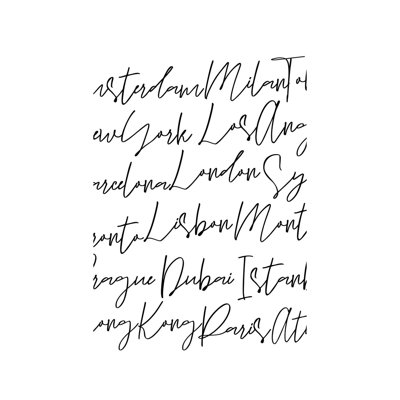 msterdam Milan To
ew York Los Ang
arcelona London Sy
ronto Lisbon Mont
rague Dubai Istan
ong Kong Paris At